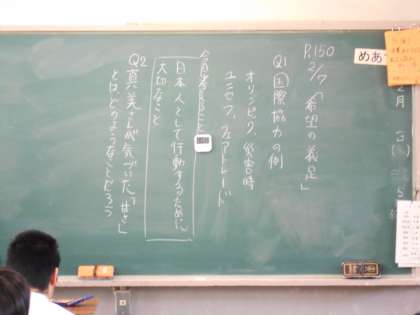 P.150
2/7 「希望の義足」
Q1 国際協力の例
オリンピック、災害時
ユニセフ、フェアトレード
今日考えること
日本人として行動するために
大切なこと
Q2 真美さんが気づいた「甘さ」
とは、どのようなことだろう
めあて
2月